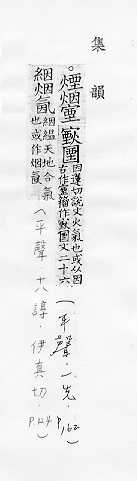 集韻
。煙烟
因蓮切說文火氣也或从因
古作籀作文二十六
(平聲·一先·P.162)
絪烟氤
絪縕天地合氣
也或作烟氤
(平聲·十八諄·伊真切·P.124)